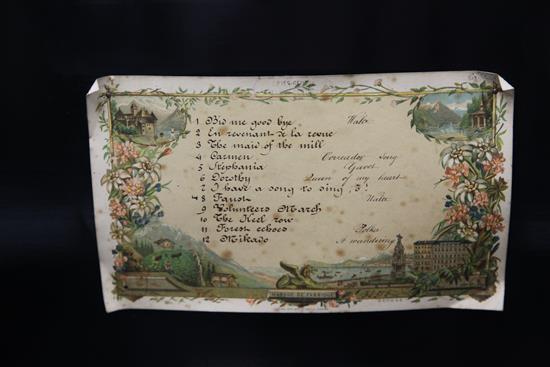 1 Bid me good bye Waltz
2 En revenant de la revue
3 The maid of the mill
4 Carmen Torreador song
5 Stephania Gavot
6 Dorothy Queen of my heart
7 I have a song to sing, O!
8 Faust Waltz
9 Volunteers March
10 The Keel row
11 Forest echoes Polka
12 Mikado A wandering
MARQUE DE FABRIQUE